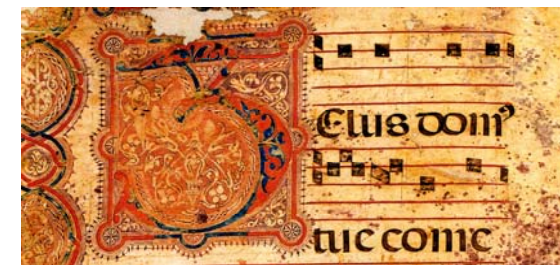 Zelus domꝰ
tue come